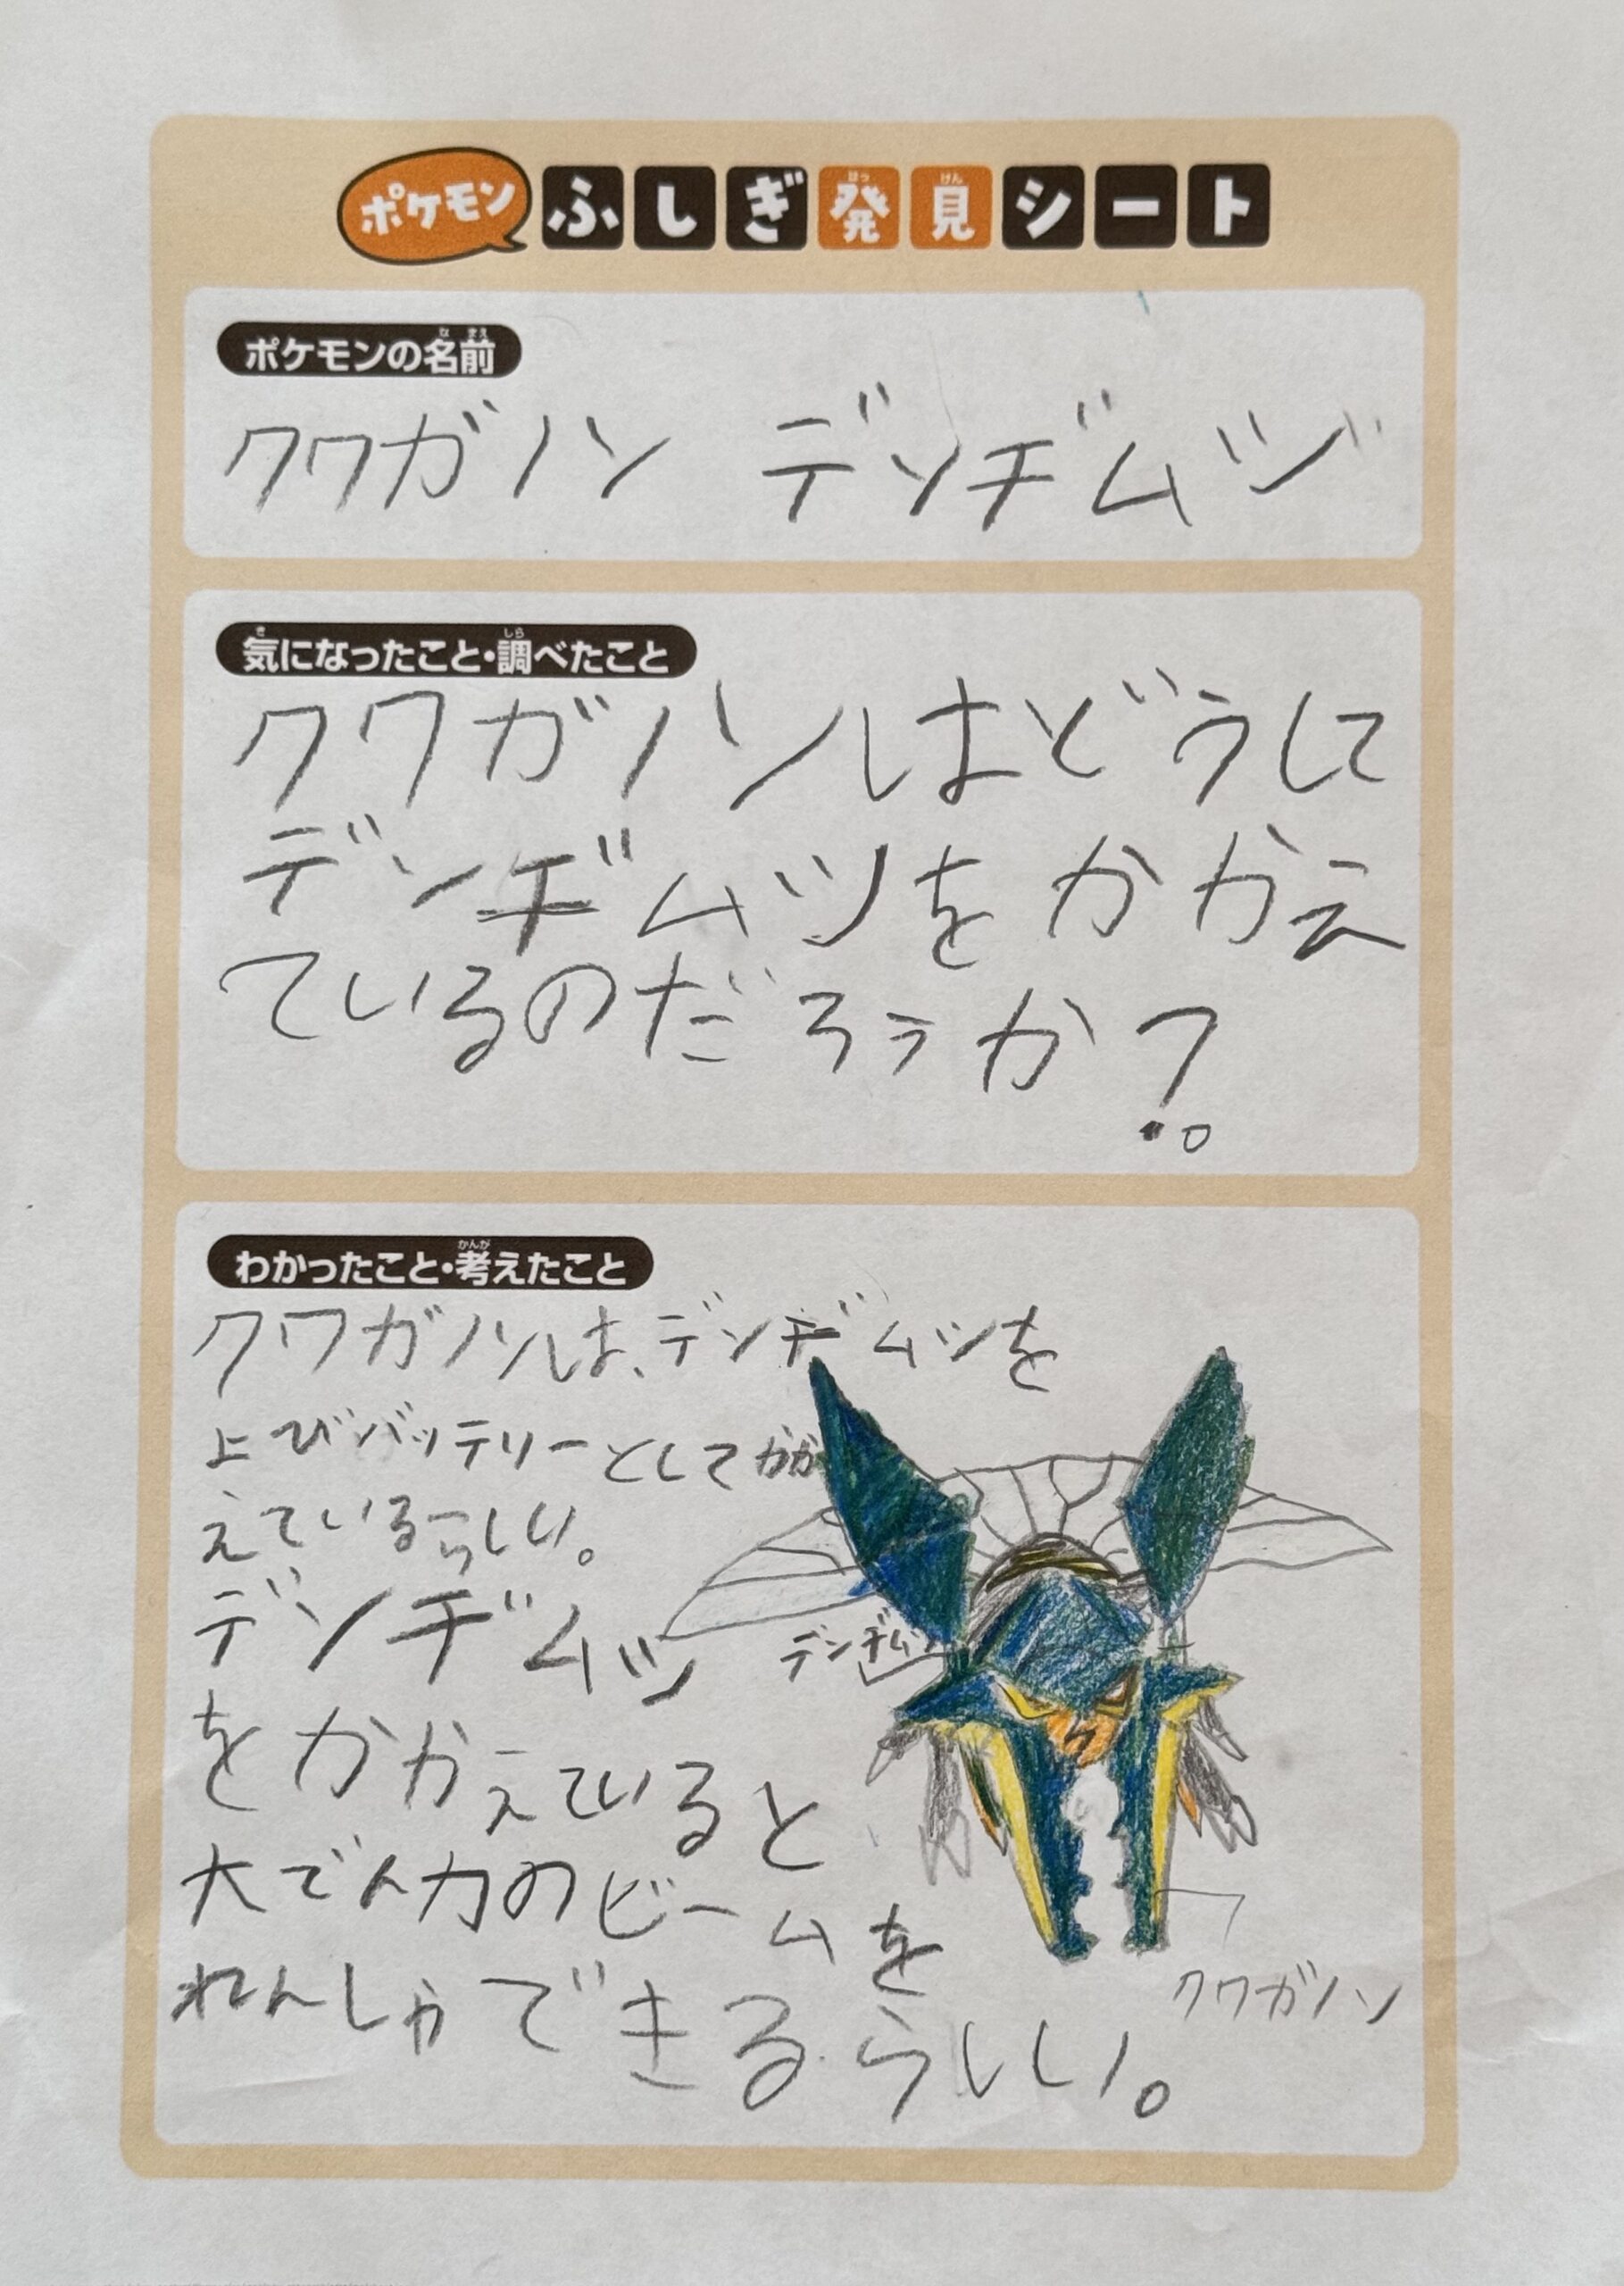 ポケモン ふしぎ発見シート
ポケモンの名前
クワガノン デンヂムジ
気になったこと・調べたこと
クワガノンはどうして
デンヂムツをかかえ
ているのだろうか?。
わかったこと・考えたこと
クワガノンは、デンヂムシを
上びバッテリーとしてかか
えているらしい。
デンヂムツ
をかかえていると
大でん力のビームを
れんしゃできるらしい。
デンヂム
クワガノン